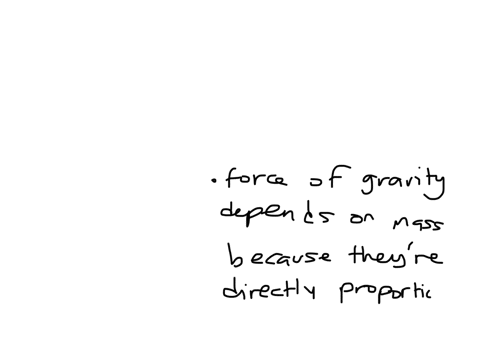 • force of gravity
depends on mass
because they're
directly proportic